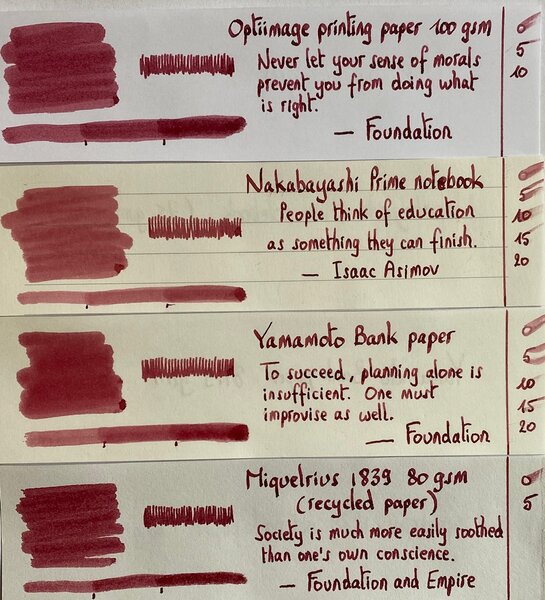 Optiimage printing paper 100 gsm
Never let your sense of morals
prevent you from doing what
is right.
— Foundation
0
5
10
Nakabayashi Prime notebook
People think of education
as something they can finish.
— Isaac Asimov
0
5
10
15
20
Yamamoto Bank paper
To succeed, planning alone is
insufficient. One must
improvise as well.
— Foundation
0
5
10
15
20
Miquelrius 1839 80 gsm
(recycled paper)
Society is much more easily soothed
than one's own conscience.
— Foundation and Empire
0
5